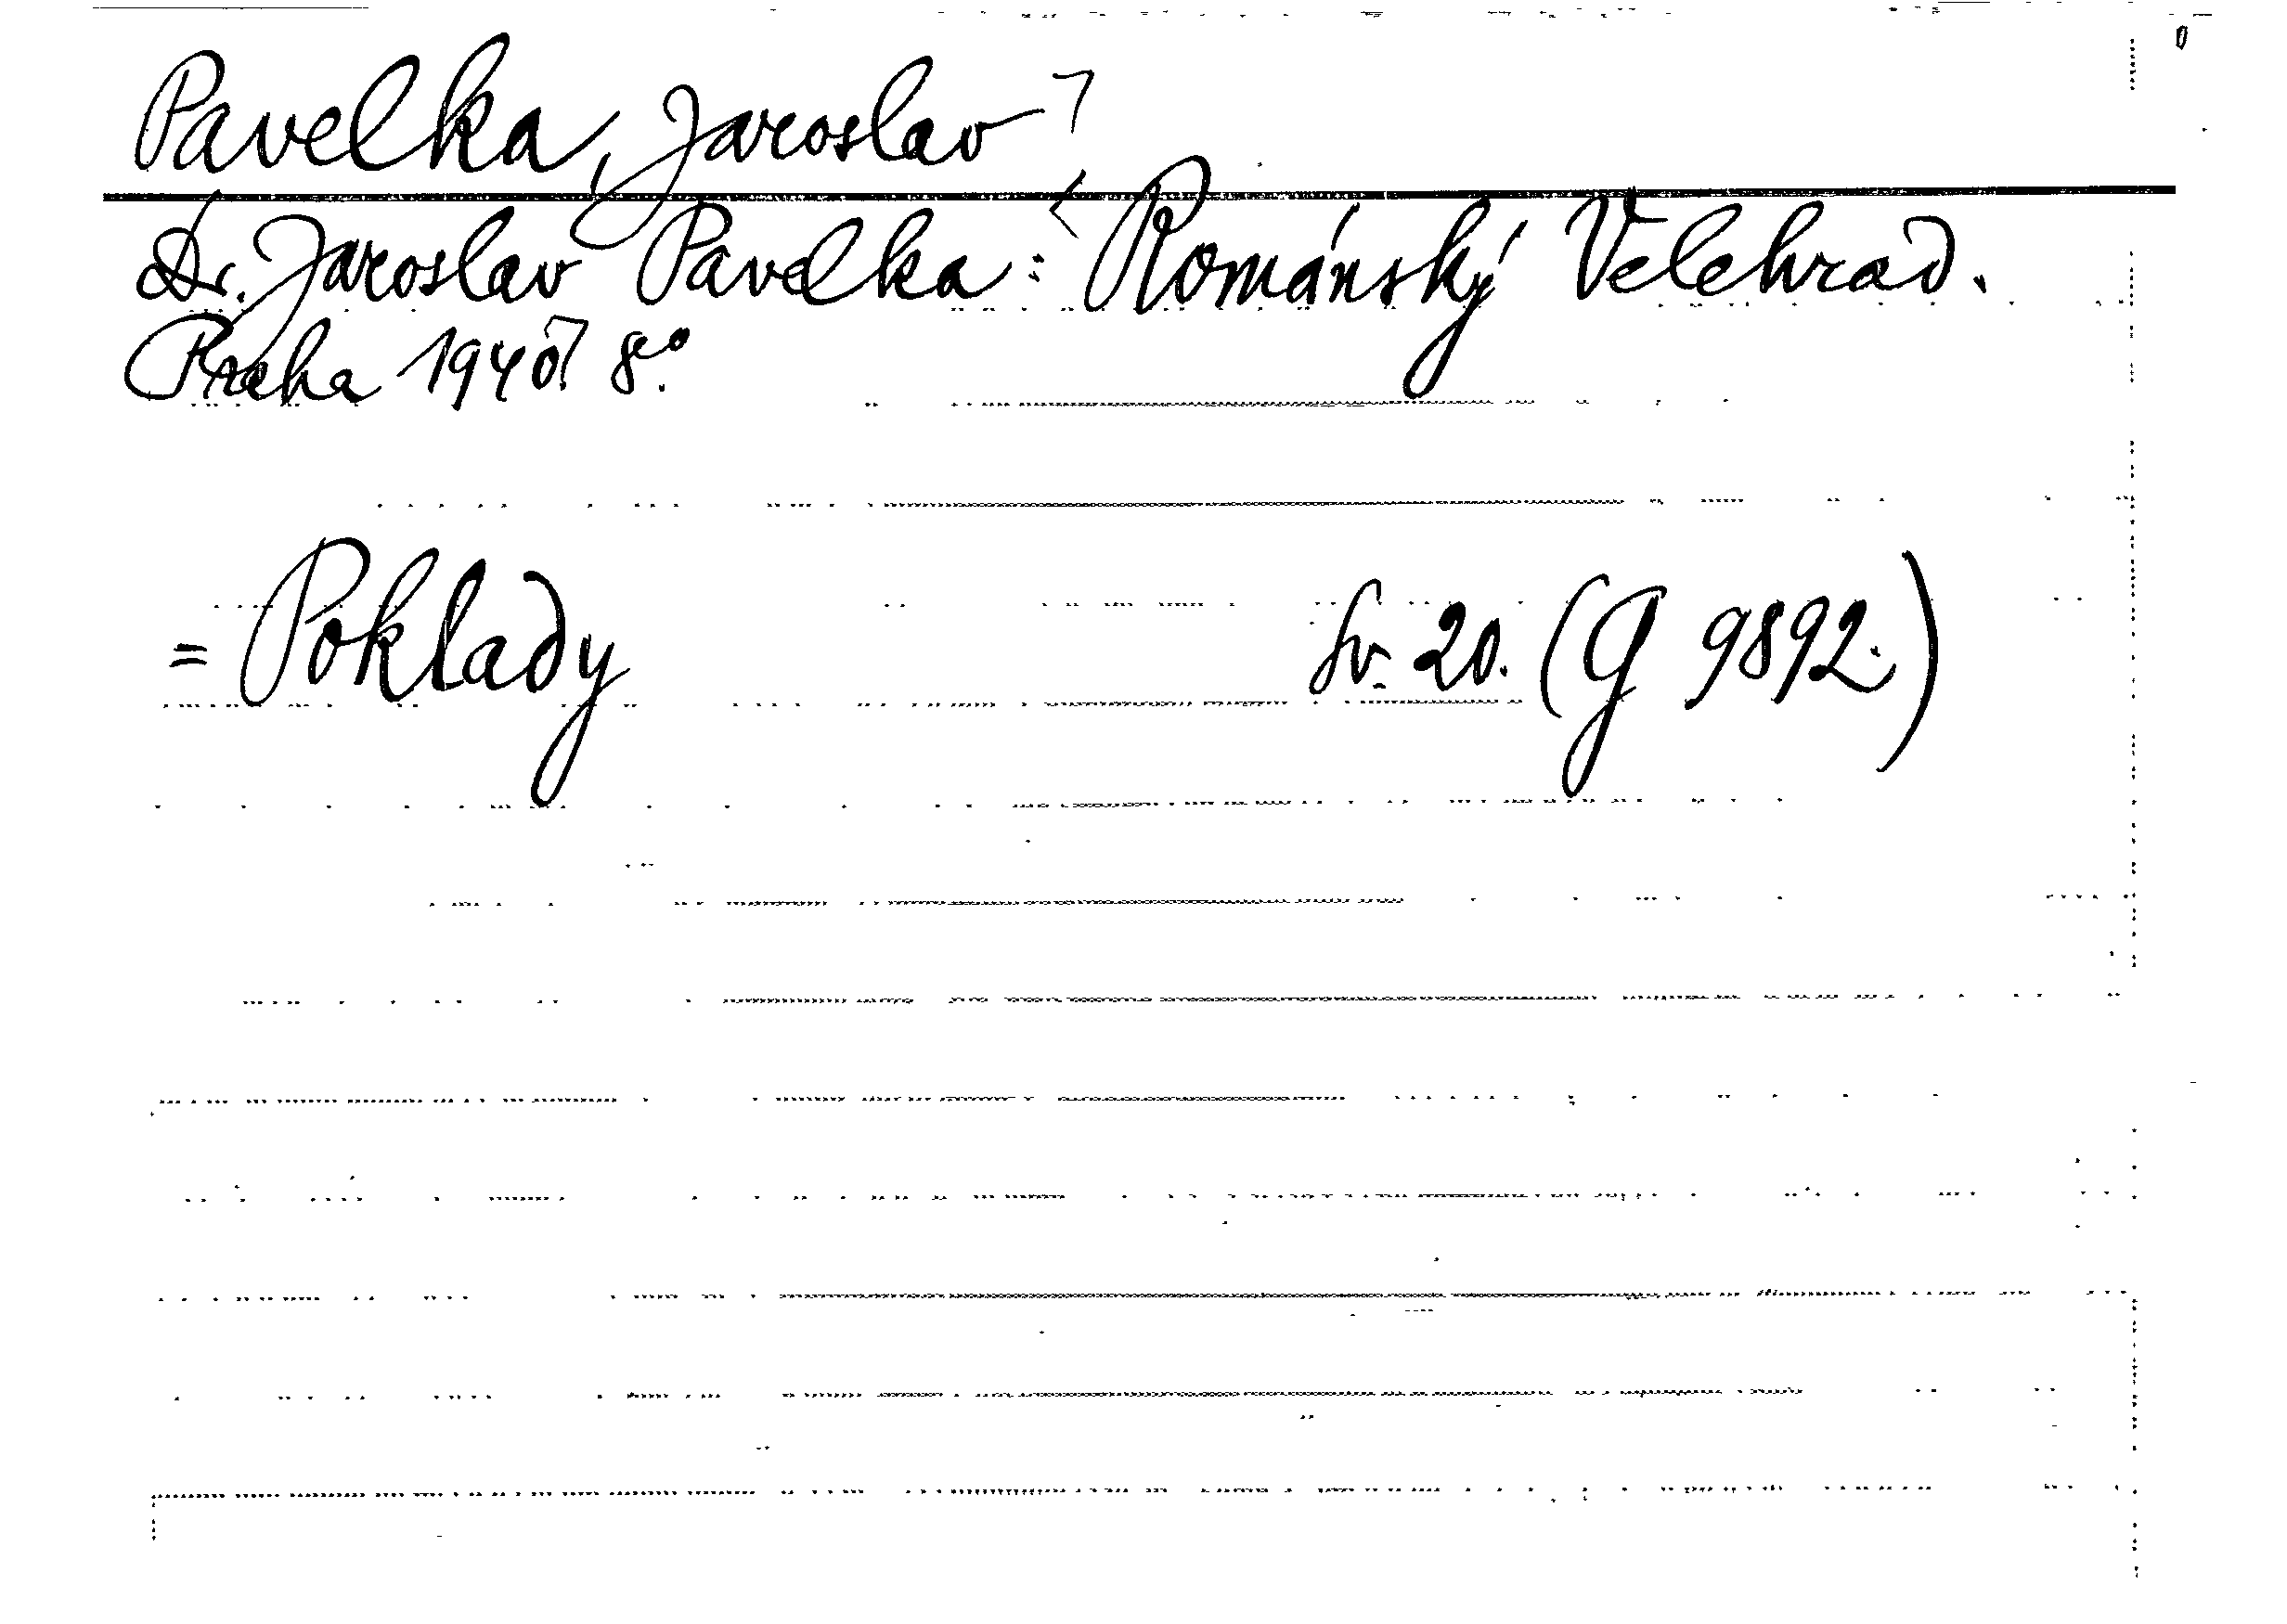 Pavelka, Jaroslav
Dr. Jaroslav Pavelka: Románský Velehrad.
Praha 1940 8°.
= Poklady Sv. 20. (G 9892.)